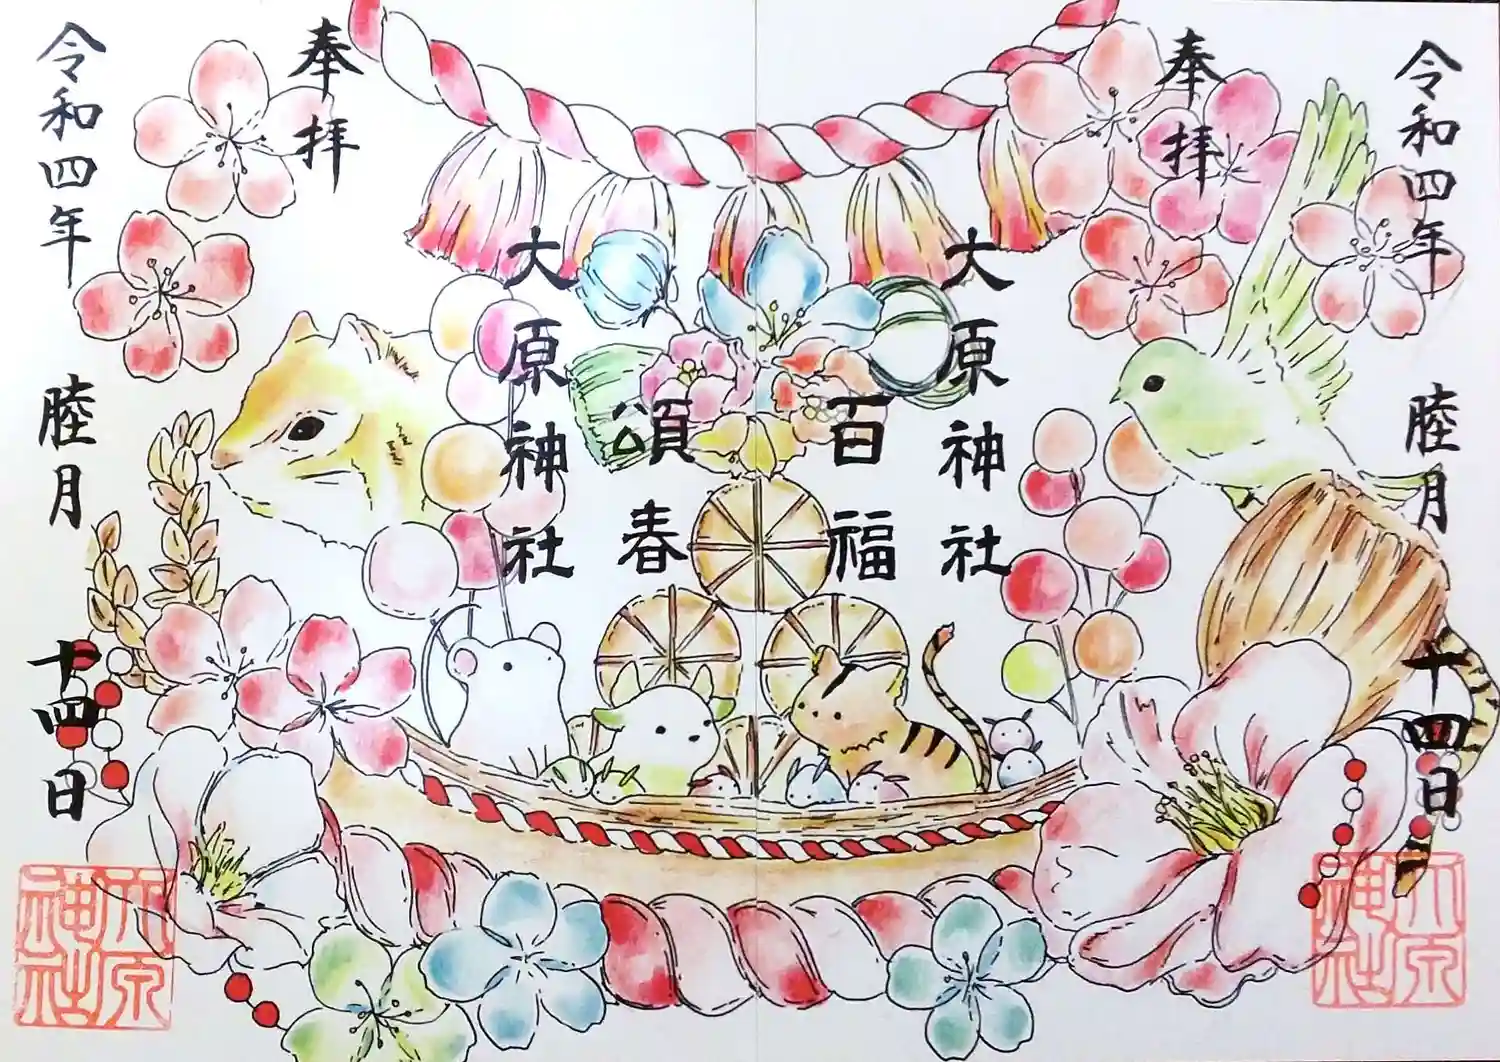 令和四年
睦月
十四日
奉拝
大原神社
百福
頌春
大原神社
奉拝
令和四年
睦月
十四日
大原神社
大原神社